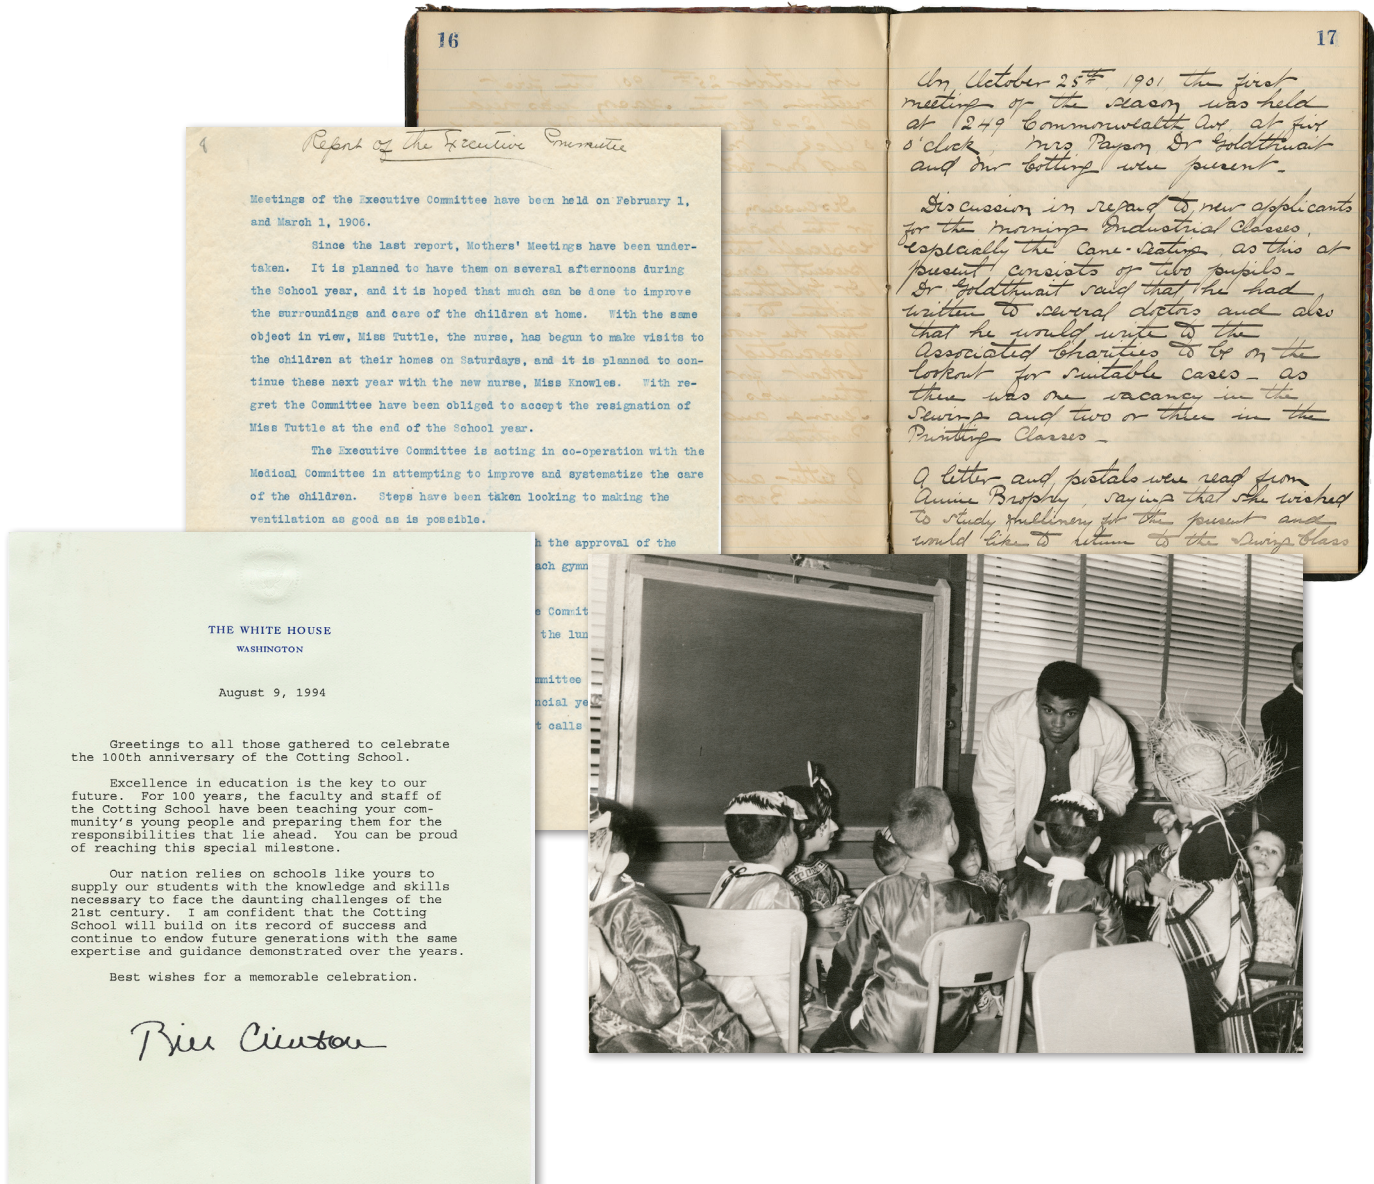 16
17
On October 25th 1901 the first
meeting of the season was held
at 249 Commonwealth Ave. at five
o'clock, Mrs Payson Dr Goldthwait
and Mr Cotting were present.
Discussion in regard to new applicants
for the morning Industrial Classes,
especially the Cane-Seating, as this at
present consists of two pupils-
Dr Goldthwait said that he had
written to several doctors and also
that he would write to the
Associated Charities to be on the
lookout for suitable cases - as
there was one vacancy in the
Sewing and two or three in the
Printing Classes -
A letter and postals were read from
Annie Brophy, saying that she wished
to study millinery for the present and
would like to return to the Sewing Class
8
Report of the Executive Committee
Meetings of the Executive Committee have been held on February 1,
and March 1, 1906.
Since the last report, Mothers' Meetings have been under-
taken. It is planned to have them on several afternoons during
the School year, and it is hoped that much can be done to improve
the surroundings and care of the children at home. With the same
object in view, Miss Tuttle, the nurse, has begun to make visits to
the children at their homes on Saturdays, and it is planned to con-
tinue these next year with the new nurse, Miss Knowles. With re-
gret the Committee have been obliged to accept the resignation of
Miss Tuttle at the end of the School year.
The Executive Committee is acting in co-operation with the
Medical Committee in attempting to improve and systematize the care
of the children. Steps have been taken looking to making the
ventilation as good as is possible.
the approval of the
ach gymn
Commit
the lun
mmittee
ncial ye
t calls
THE WHITE HOUSE
WASHINGTON
August 9, 1994
Greetings to all those gathered to celebrate
the 100th anniversary of the Cotting School.
Excellence in education is the key to our
future. For 100 years, the faculty and staff of
the Cotting School have been teaching your com-
munity's young people and preparing them for the
responsibilities that lie ahead. You can be proud
of reaching this special milestone.
Our nation relies on schools like yours to
supply our students with the knowledge and skills
necessary to face the daunting challenges of the
21st century. I am confident that the Cotting
School will build on its record of success and
continue to endow future generations with the same
expertise and guidance demonstrated over the years.
Best wishes for a memorable celebration.
Bill Clinton